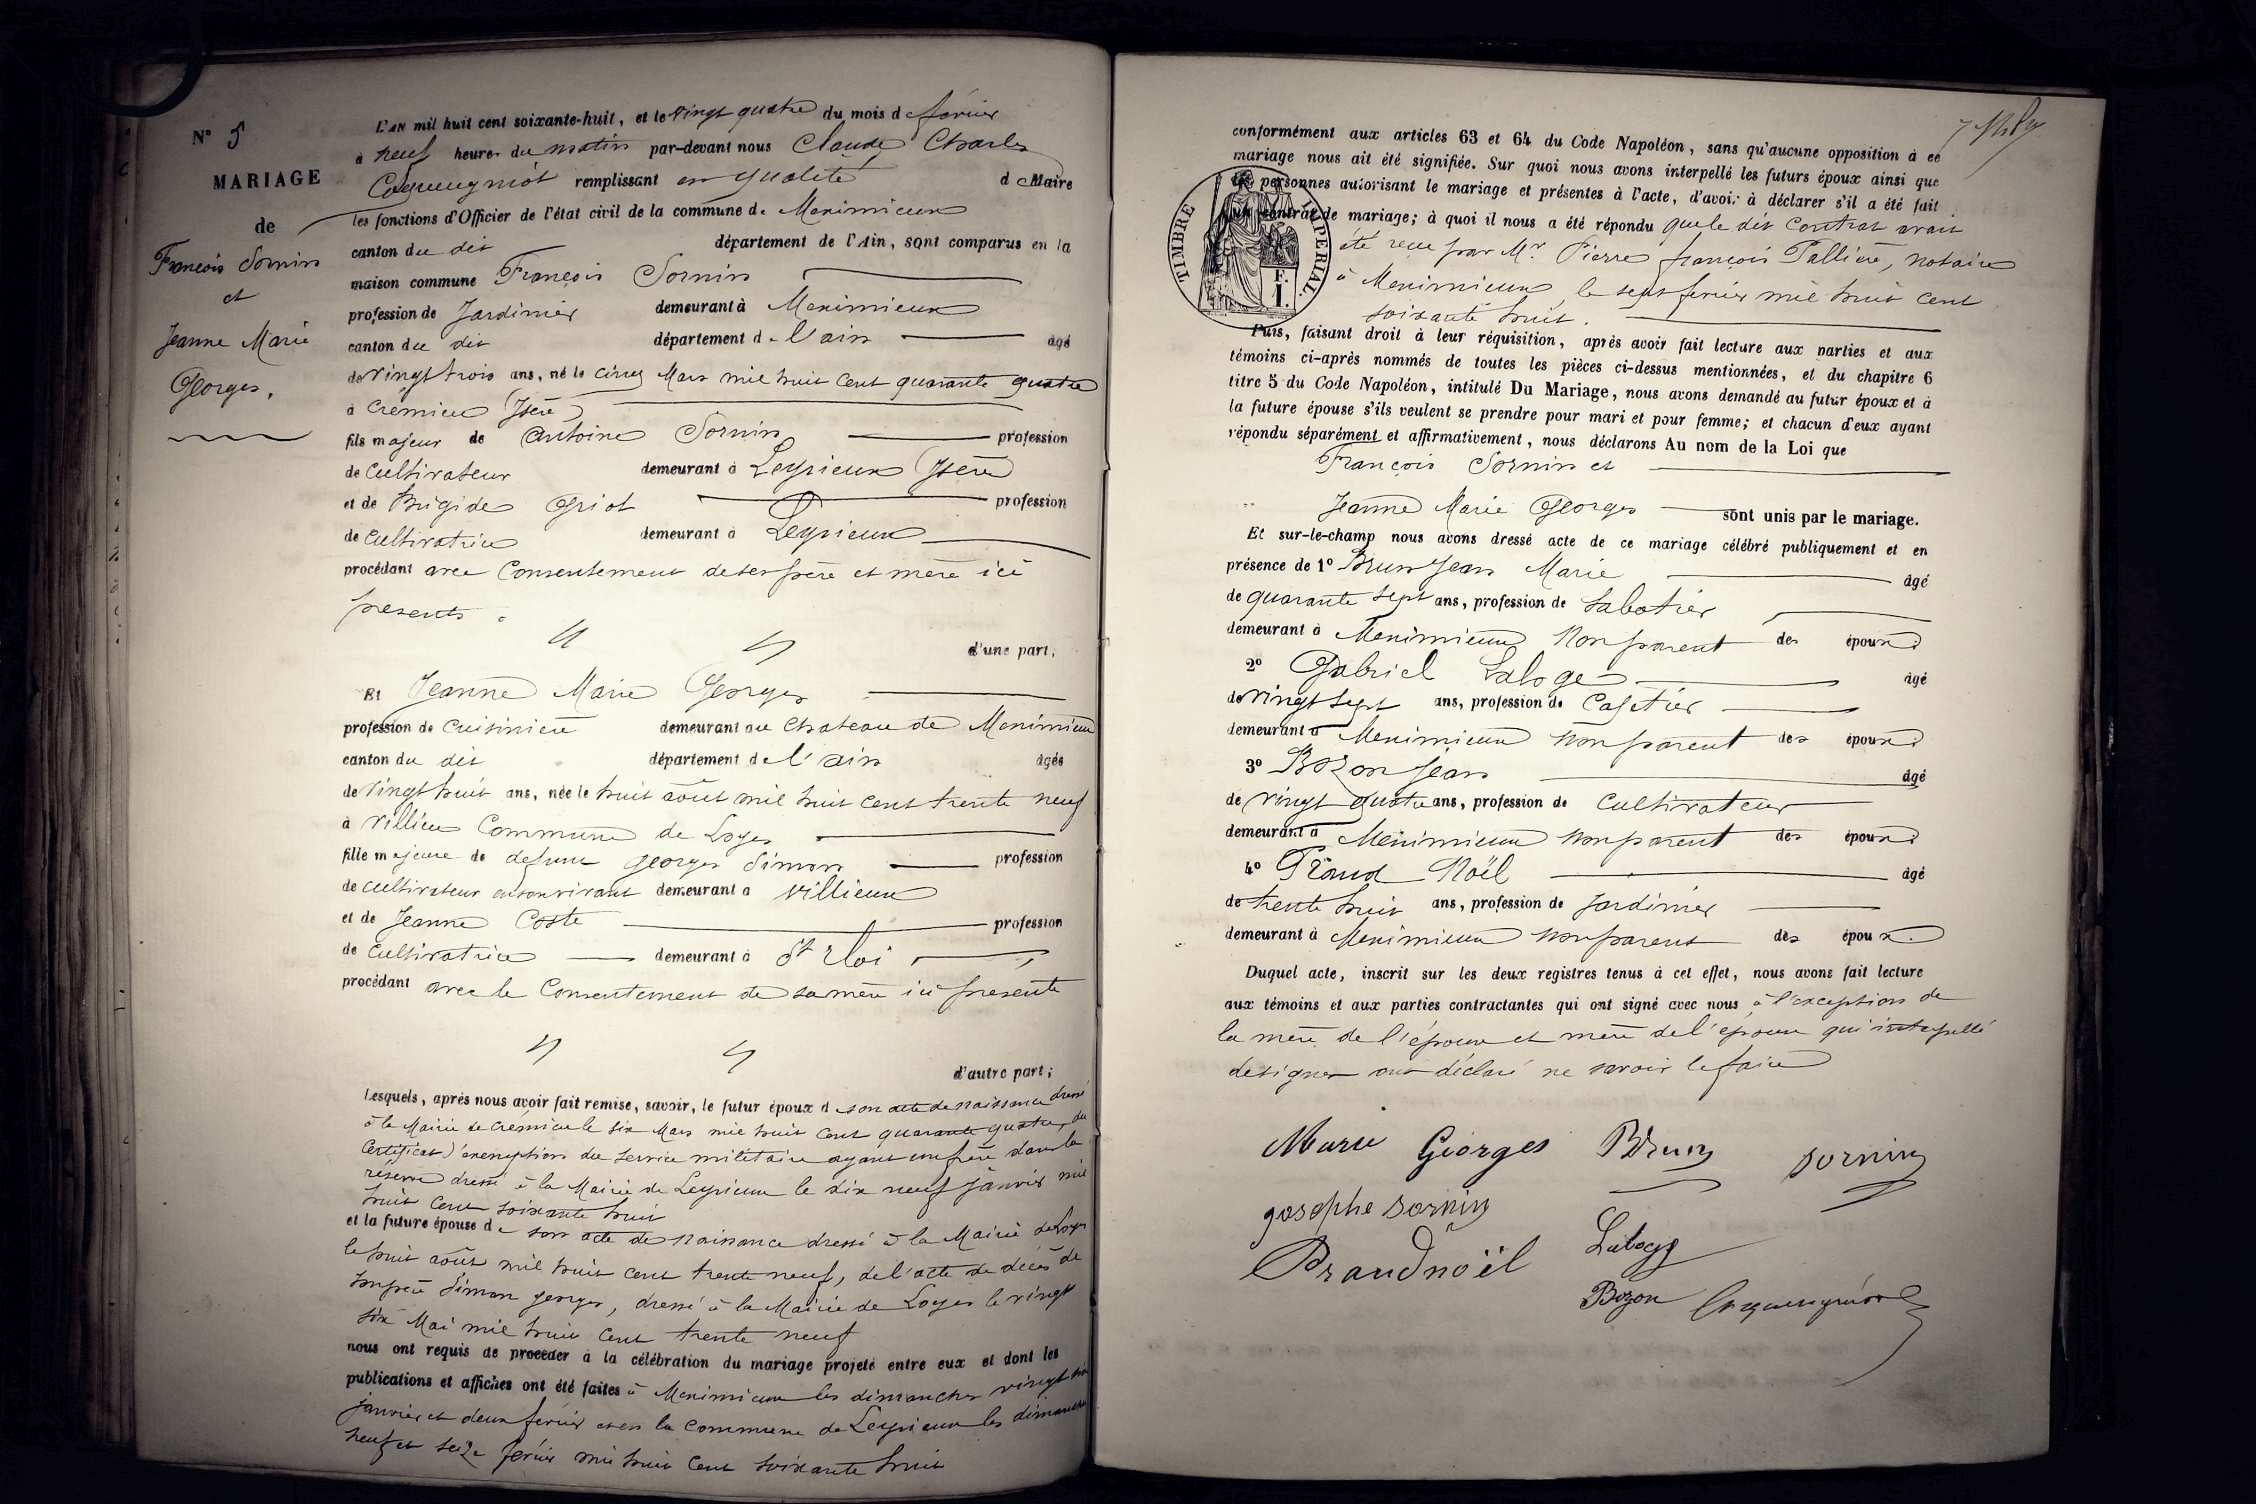 N° 5
MARIAGE
de
François Sornin
et
Jeanne Marie
Georges.
L'AN mil huit cent soixante-huit, et le vingt quatre du mois de février
à neuf heures du matin par-devant nous Claude Charles
remplissant en qualité de Maire
les fonctions d'Officier de l'état civil de la commune de Meximieux
canton du dit département de l'Ain, sont comparus en la
maison commune François Sornin
profession de Jardinier demeurant à Meximieux
canton du dit département de l'ain âgé
de vingt trois ans, né le cinq Mars mil huit cent quarante quatre
à Crémieu (Isère)
fils majeur de Antoine Sornin profession
de cultivateur demeurant à Leyrieux Isère
et de Brigide Griot profession
de cultivatrice demeurant à Leyrieux
procédant avec consentement de ses père et mère ici
présents.
d'une part;
Et Jeanne Marie Georges
profession de cuisinière demeurant au chateau de Meximieux
canton du dit département de l'ain âgée
de vingt huit ans, née le huit août mil huit cent trente neuf
à Villieu commune de Loyes
fille majeure de defunt georges Simon profession
de cultivateur en son vivant demeurant à Villieux
et de Jeanne Coste profession
de cultivatrice demeurant à St Eloi
procédant avec le consentement de sa mère ici présente
d'autre part;
Lesquels, après nous avoir fait remise, savoir, le futur époux de son acte de naissance dressé
à la Mairie de Crémieu le six Mars mil huit cent quarante quatre, du
certificat d'exemption du service militaire ayant un frère dans la
réserve dressé à la Mairie de Leyrieux le dix neuf janvier mil
huit cent soixante huit
et la future épouse de son acte de naissance dressé à la Mairie de Loyes
le huit août mil huit cent trente neuf, de l'acte de décès de
son père Simon georges, dressé à la Mairie de Loyes le vingt
six Mai mil huit cent trente neuf
nous ont requis de procéder à la célébration du mariage projeté entre eux et dont les
publications et affiches ont été faites à Meximieux les dimanches vingt six
janvier et deux février et en la commune de Leyrieux les dimanches
neuf et seize février mil huit cent soixante huit
conformément aux articles 63 et 64 du Code Napoléon, sans qu'aucune opposition à ce
mariage nous ait été signifiée. Sur quoi nous avons interpellé les futurs époux ainsi que
les personnes autorisant le mariage et présentes à l'acte, d'avoir à déclarer s'il a été fait
un contrat de mariage; à quoi il nous a été répondu que le dit contrat avait
été reçu par Mr Pierre françois Pallière, notaire
à Meximieux, le sept février mil huit cent
soixante huit.
TIMBRE IMPERIAL.
F.
1.
Puis, faisant droit à leur réquisition, après avoir fait lecture aux parties et aux
témoins ci-après nommés de toutes les pièces ci-dessus mentionnées, et du chapitre 6
titre 5 du Code Napoléon, intitulé Du Mariage, nous avons demandé au futur époux et à
la future épouse s'ils veulent se prendre pour mari et pour femme; et chacun d'eux ayant
répondu séparément et affirmativement, nous déclarons Au nom de la Loi que
François Sornin et
Jeanne Marie Georges sont unis par le mariage.
Et sur-le-champ nous avons dressé acte de ce mariage célébré publiquement et en
présence de 1° Brun Jean Marie âgé
de quarante sept ans, profession de Sabotier
demeurant à Meximieux non parent des époux.
2° Gabriel Laloge âgé
de vingt sept ans, profession de Cafetier
demeurant à Meximieux non parent des époux.
3° Bozon Jean âgé
de vingt quatre ans, profession de cultivateur
demeurant à Meximieux non parent des époux.
4° Praud Noël âgé
de trente huit ans, profession de Jardinier
demeurant à Meximieux non parent des époux.
Duquel acte, inscrit sur les deux registres tenus à cet effet, nous avons fait lecture
aux témoins et aux parties contractantes qui ont signé avec nous à l'exception de
la mère de l'épouse et mère de l'époux qui interpellé
de signer ont déclaré ne savoir le faire
Marie Georges Brun Sornin
josephe sornin
Praud noël Laloge
Bozon